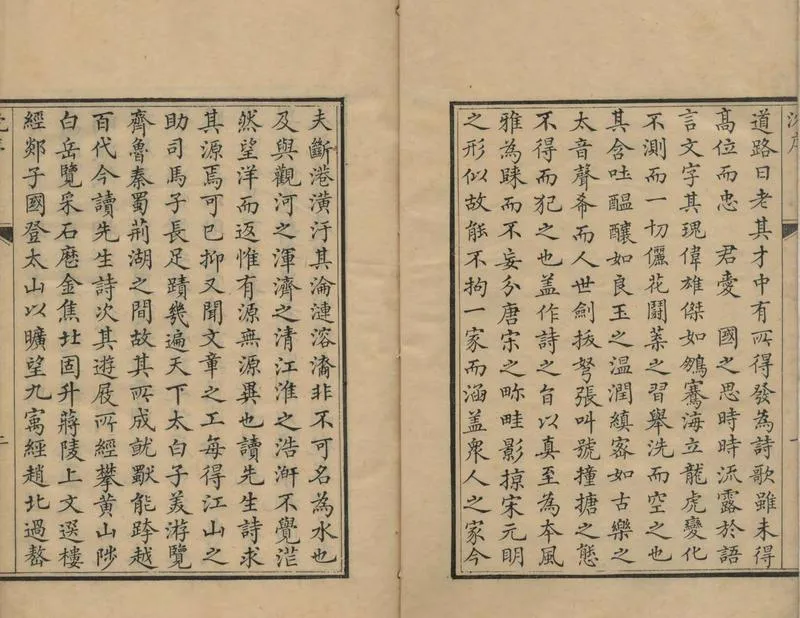 道路曰老其才中有所得發為詩歌雖未得
高位而忠 君愛 國之思時時流露於語
言文字其瑰偉雄傑如鵬騫海立龍虎變化
不測而一切儷花鬭葉之習舉洗而空之也
其含吐醞釀如良玉之温潤縝密如古樂之
太音聲希而人世劍拔弩張叫號撞搪之態
不得而犯之也蓋作詩之旨以真至為本風
雅為而不妄分唐宋之畛畦影掠宋元明
之形似故能不拘一家而涵蓋衆人之家今
夫斷港潢汙其淪漣溶潏非不可名為水也
及與觀河之渾濟之清江淮之浩澣不覺茫
然望洋而返惟有源無源異也讀先生詩求
其源焉可已抑又聞文章之工每得江山之
助司馬子長足蹟幾遍天下太白子美游覽
齊魯秦蜀荊湖之間故其所成就能跨越
百代今讀先生詩次其遊屐所經攀黃山陟
白岳覽采石歷金焦北固升蔣陵上文選樓
經郯子國登太山以曠望九寓經趙北過